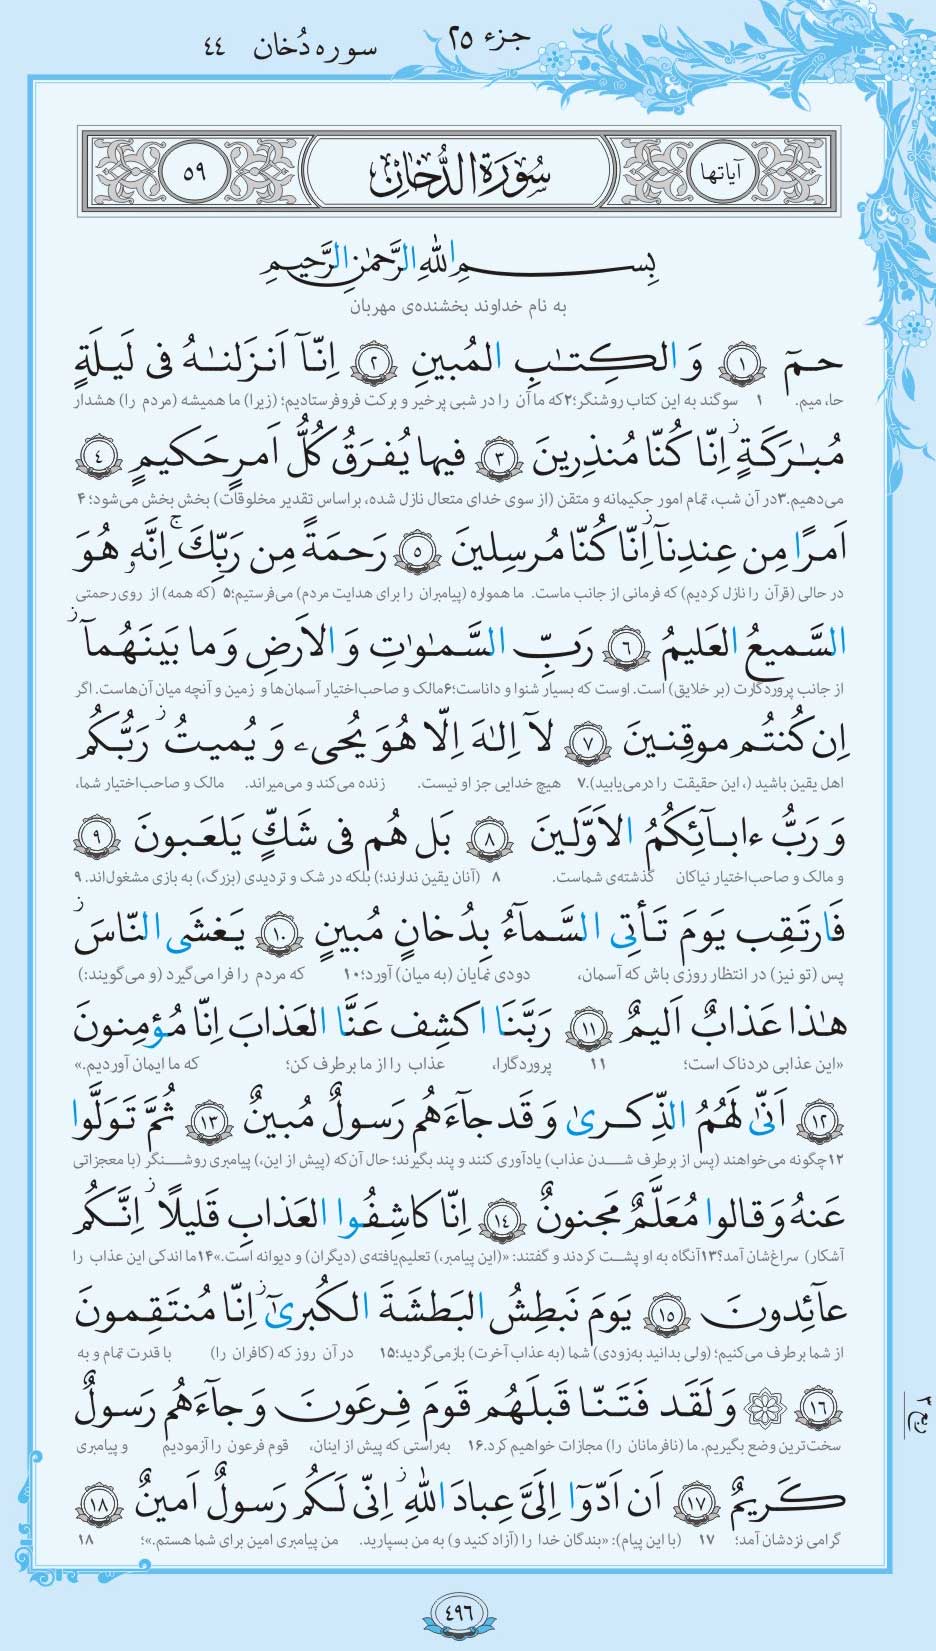 جزء ۲۵
سوره دُخان ۴۴
آیاتها سُورَةُ الدُّخان ۵۹
بِسمِ اللّٰهِ الرَّحمٰنِ الرَّحیمِ
به نام خداوند بخشنده‌ی مهربان
حمٓ ﴿۱﴾ وَ الکِتٰبِ المُبینِ ﴿۲﴾ اِنّآ اَنزَلنٰهُ فی لَیلَةٍ
حا، میم. ۱ سوگند به این کتاب روشنگر؛۲که ما آن را در شبی پرخیر و برکت فروفرستادیم؛ (زیرا) ما همیشه (مردم را) هشدار
مُبٰرَکَةٍ ز اِنّا کُنّا مُنذِرینَ ﴿۳﴾ فیها یُفرَقُ کُلُّ اَمرٍ حَکیمٍ ﴿۴﴾
می‌دهیم.۳در آن شب، تمام امور حکیمانه و متقن (از سوی خدای متعال نازل شده، براساس تقدیر مخلوقات) بخش بخش می‌شود؛ ۴
اَمرًا مِن عِندِنآ ز اِنّا کُنّا مُرسِلینَ ﴿۵﴾ رَحمَةً مِن رَبِّكَ ج اِنَّهٗ هُوَ
در حالی (قرآن را نازل کردیم) که فرمانی از جانب ماست. ما همواره (پیامبران را برای هدایت مردم) می‌فرستیم؛۵ (که همه) از روی رحمتی
السَّمیعُ العَلیمُ ﴿۶﴾ رَبِّ السَّمٰوٰتِ وَ الاَرضِ وَ ما بَینَهُمآ ز
از جانب پروردگارت (بر خلایق) است. اوست که بسیار شنوا و داناست؛۶مالک و صاحب‌اختیار آسمان‌ها و زمین و آنچه میان آن‌هاست. اگر
اِن کُنتُم موقِنینَ ﴿۷﴾ لآ اِلٰهَ اِلّا هُوَ یُحیی وَ یُمیتُ ز رَبُّکُم
اهل یقین باشید (، این حقیقت را درمی‌یابید).۷ هیچ خدایی جز او نیست. زنده می‌کند و می‌میراند. مالک و صاحب‌اختیار شما،
وَ رَبُّ ءابآئِکُمُ الاَوَّلینَ ﴿۸﴾ بَل هُم فی شَكٍّ یَلعَبونَ ﴿۹﴾
و مالک و صاحب‌اختیار نیاکان گذشته‌ی شماست. ۸ (آنان یقین ندارند؛) بلکه در شک و تردیدی (بزرگ،) به بازی مشغول‌اند. ۹
فَارتَقِب یَومَ تَأتِی السَّمآءُ بِدُخانٍ مُبینٍ ﴿۱۰﴾ یَغشَی النّاسَ ز
پس (تو نیز) در انتظار روزی باش که آسمان، دودی نمایان (به میان) آورد؛۱۰ که مردم را فرا می‌گیرد (و می‌گویند:)
هٰذا عَذابٌ اَلیمٌ ﴿۱۱﴾ رَبَّنَا اکشِف عَنَّا العَذابَ اِنّا مُؤمِنونَ
«این عذابی دردناک است؛ ۱۱ پروردگارا، عذاب را از ما برطرف کن؛ که ما ایمان آوردیم.»
﴿۱۲﴾ اَنّیٰ لَهُمُ الذِّکریٰ وَ قَد جآءَهُم رَسولٌ مُبینٌ ﴿۱۳﴾ ثُمَّ تَوَلَّوا
۱۲چگونه می‌خواهند (پس از برطرف شدن عذاب) یادآوری کنند و پند بگیرند؛ حال آن‌که (پیش از این،) پیامبری روشنگر (با معجزاتی
عَنهُ وَ قالوا مُعَلَّمٌ مَجنونٌ ﴿۱۴﴾ اِنّا کاشِفُوا العَذابِ قَلیلًا ز اِنَّکُم
آشکار) سراغ‌شان آمد؟۱۳آنگاه به او پشت کردند و گفتند: «(این پیامبر،) تعلیم‌یافته‌ی (دیگران) و دیوانه است.»۱۴ما اندکی این عذاب را
عآئِدونَ ﴿۱۵﴾ یَومَ نَبطِشُ البَطشَةَ الکُبریٰٓ ز اِنّا مُنتَقِمونَ
از شما برطرف می‌کنیم؛ (ولی بدانید به‌زودی) شما (به عذاب آخرت) بازمی‌گردید؛۱۵ در آن روز که (کافران را) با قدرت تمام و به
﴿۱۶﴾ ۞ وَ لَقَد فَتَنّا قَبلَهُم قَومَ فِرعَونَ وَ جآءَهُم رَسولٌ
سخت‌ترین وضع بگیریم. ما (نافرمانان را) مجازات خواهیم کرد.۱۶ به‌راستی که پیش از اینان، قوم فرعون را آزمودیم و پیامبری
کَریمٌ ﴿۱۷﴾ اَن اَدّوٓا اِلَیَّ عِبادَ اللّٰهِ ز اِنّی لَکُم رَسولٌ اَمینٌ ﴿۱۸﴾
گرامی نزدشان آمد؛ ۱۷ (با این پیام): «بندگان خدا را (آزاد کنید و) به من بسپارید. من پیامبری امین برای شما هستم.»؛ ۱۸
۴۹۶